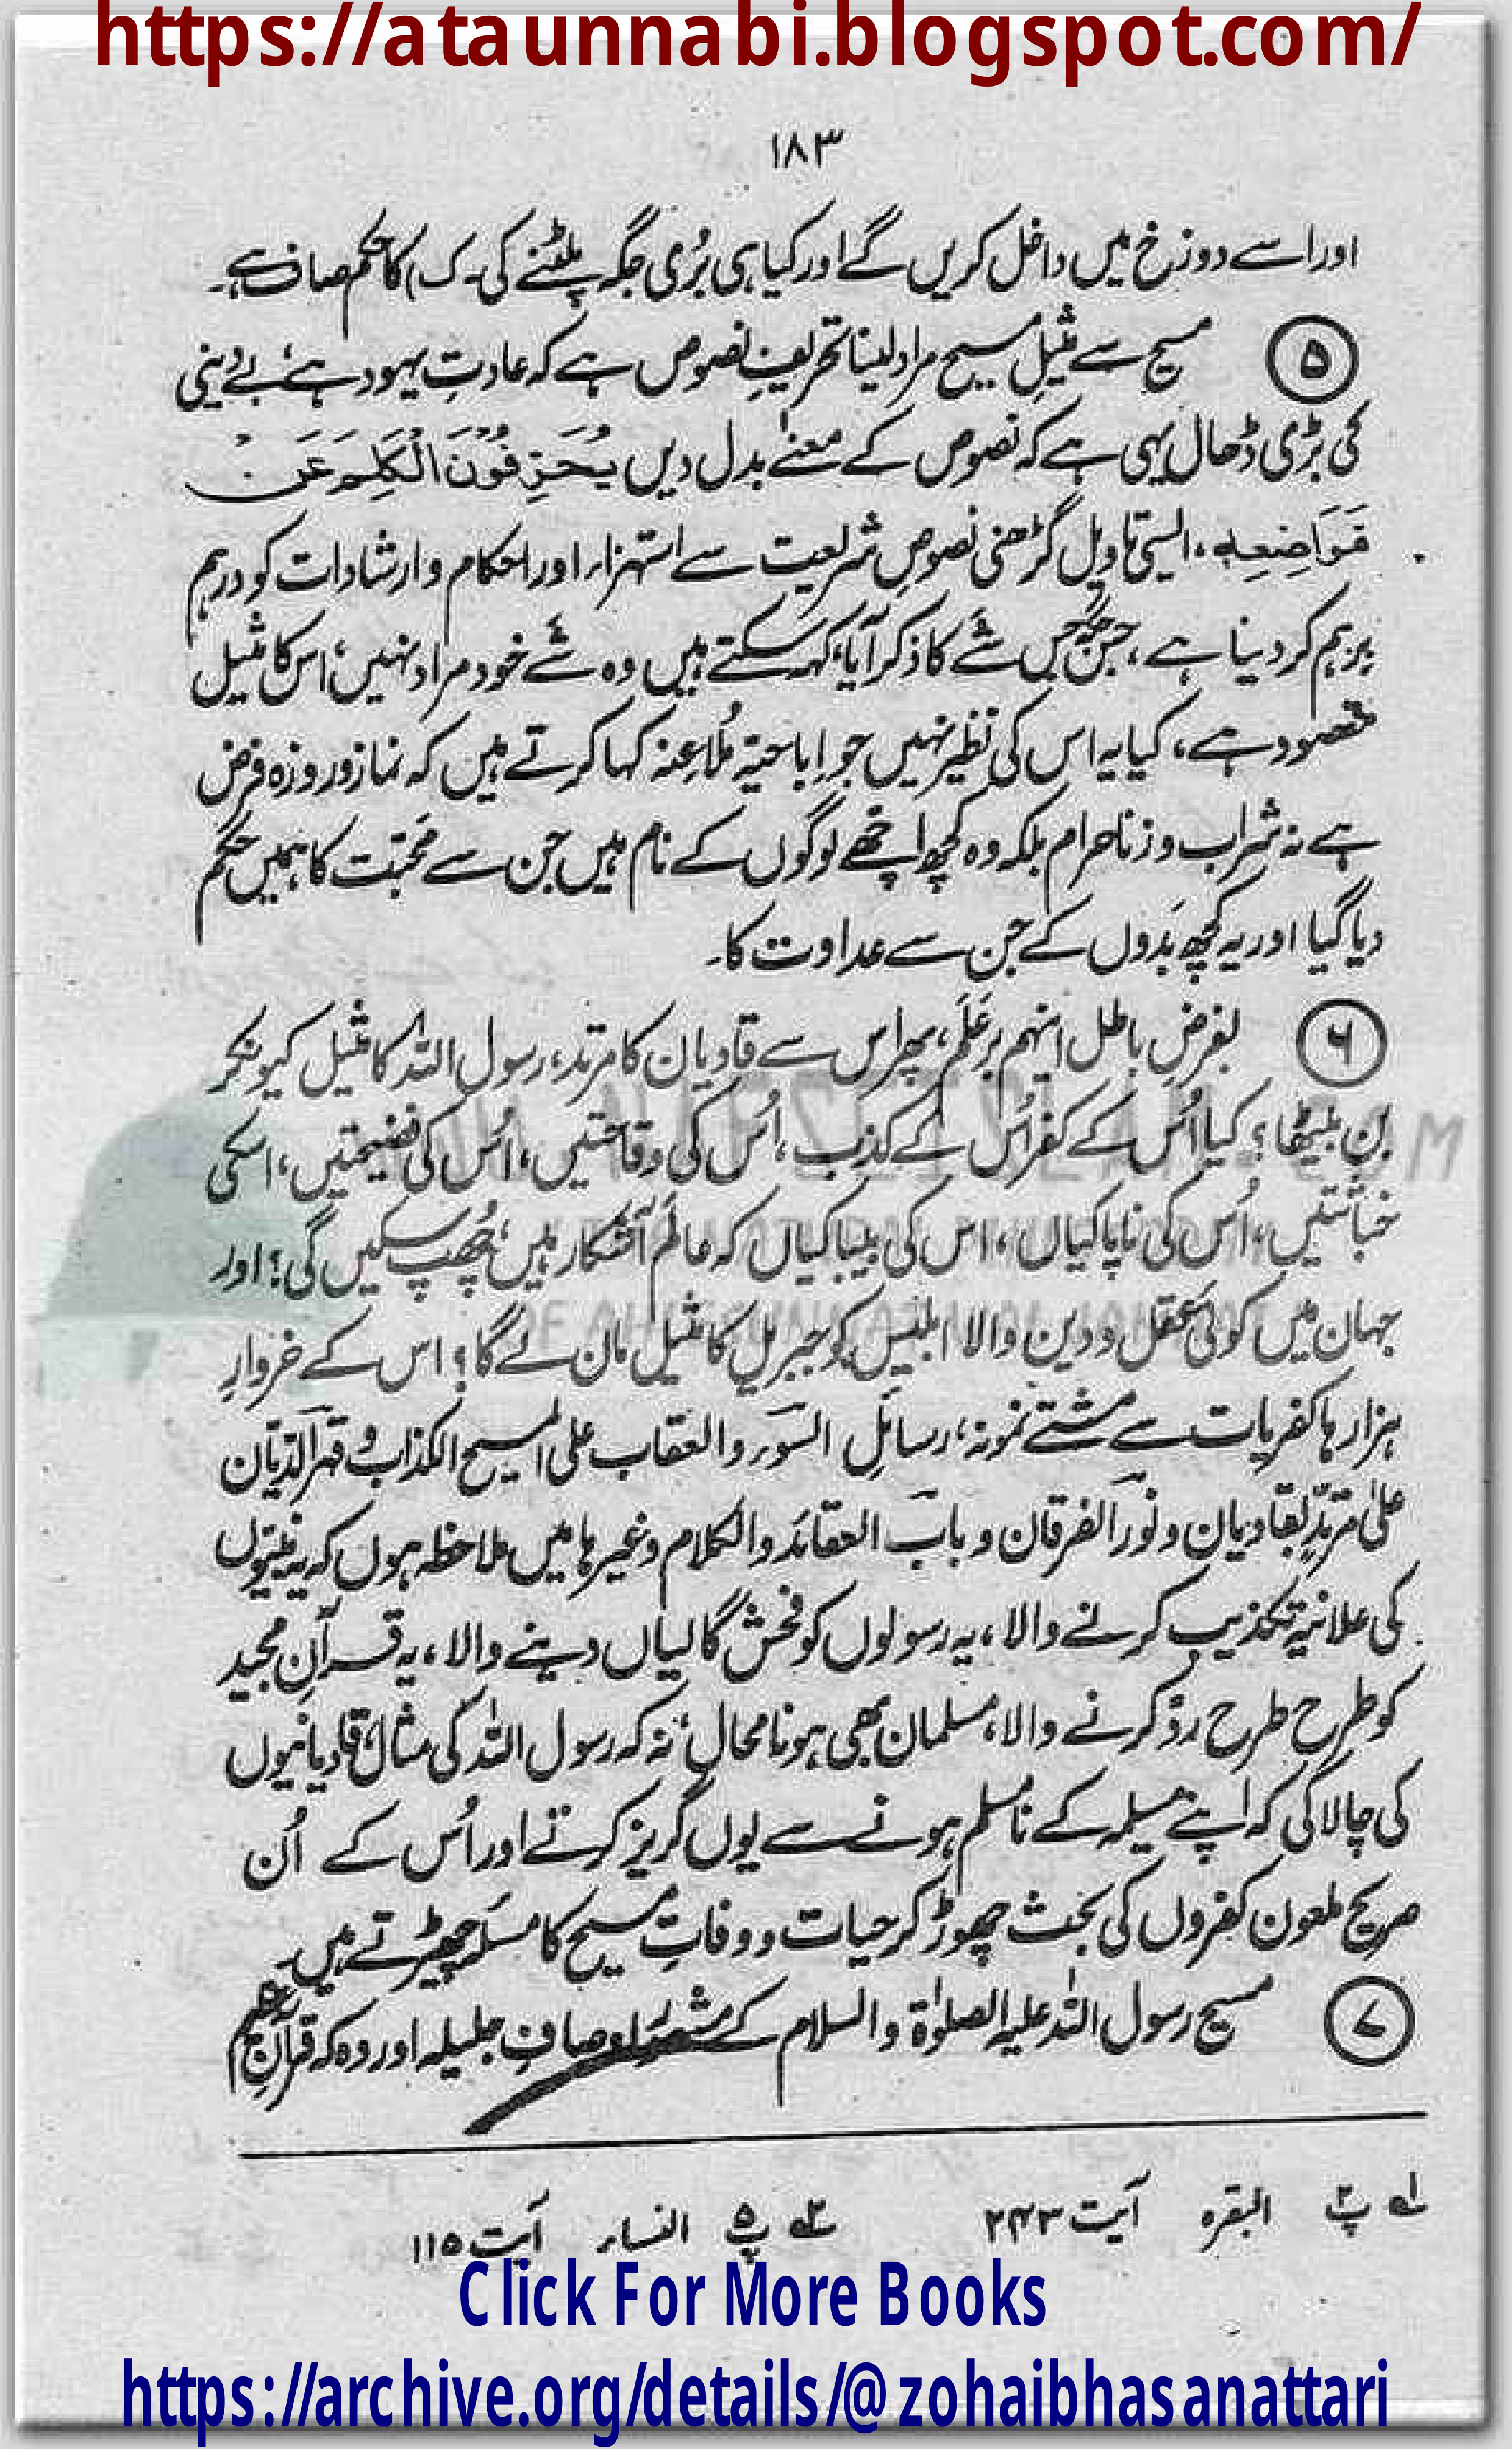 https://ataunnabi.blogspot.com/
۱۸۳
اور اسے دوزخ میں داخل کریں گے اور کیا ہی بُری جگہ پلٹنے کی۔ ک) کا حکم صاف ہے۔
۵ مسیح سے مثیلِ مسیح مراد لینا تحریفِ نصوص ہے کہ عادتِ یہود ہے، بے دینی
کی بڑی ڈھال یہی ہے کہ نصوص کے معنے بدل دیں یُحَرِّفُوْنَ الْکَلِمَ عَنْ
مَّوَاضِعِہٖ، ایسی تاویل گڑھنی نصوصِ شریعت سے استہزار اور احکام و ارشادات کو درہم
برہم کر دینا ہے، جس جگہ جس شے کا ذکر آیا، کہہ سکتے ہیں وہ شے خود مراد نہیں، اس کا مثیل
مقصود ہے، کیا یہ اس کی نظیر نہیں جو اباحیۃ مُلاعِنہ کہا کرتے ہیں کہ نماز و روزہ فرض
ہے نہ شراب و زنا حرام بلکہ وہ کچھ اچھے لوگوں کے نام ہیں جن سے محبّت کا ہمیں حکم
دیا گیا اور یہ کچھ بَدوں کے جن سے عداوت کا۔
۶ بفرضِ باطل اینہم بر عَلَم، پھر اس سے قادیان کا مرتد، رسول اللہ کا مثیل کیونکر
بن بیٹھا؟ کیا اُس کے کفر اُس کے کذب، اُس کی وقاحتیں، اُس کی فضیحتیں، اسکی
خباثتیں، اُس کی ناپاکیاں، اس کی بیباکیاں کہ عالَم آشکار ہیں، چُھپ سکیں گی؟ اور
جہان میں کوئی عقل و دین والا ابلیس کو جبریل کا مثیل مان لے گا؟ اس کے خروارِ
ہزار ہا کفریات سے مشتے نمونہ، رسائلِ السّوٓر والعقاب علی المسیح الکذاب و قہر الدّیّان
علیٰ مرتدّ بقادیان و نور الفرقان و باب العقائد والکلام وغیرہا میں ملاحظہ ہوں کہ یہ نبیّوں
کی علانیہ تکذیب کرنے والا، یہ رسولوں کو فحش گالیاں دینے والا، یہ قرآنِ مجید
کو طرح طرح ردّ کرنے والا، مسلمان بھی ہونا محال، نہ کہ رسول اللہ کی مثال، قادیانیوں
کی چالاکی کہ اپنے مسیلمہ کے نامسلم ہونے سے یوں گریز کرتے اور اُس کے اُن
صریح ملعون کفروں کی بحث چھوڑ کر حیات و وفاتِ مسیح کا مسئلہ چھیڑتے ہیں۔
۷ مسیح رسول اللہ علیہ الصلوٰۃ والسلام کے مشہور اوصافِ جلیلہ اور وہ کہ قرآنِ عظیم
لہ پ۲ البقرہ آیت ۲۴۳ ۲ہ پ۵ النسار آیت ۱۱۵
Click For More Books
https://archive.org/details/@zohaibhasanattari